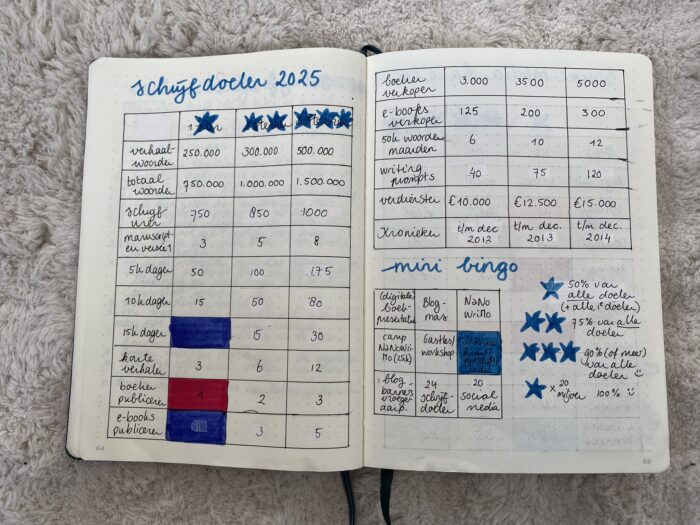 schrijfdoelen 2025
verhaal-
woorden
250.000
300.000
500.000
totaal
woorden
750.000
1.000.000
1.500.000
schrijf
uren
750
850
1000
manuscript-
en versie 1
3
5
8
5k dagen
50
100
175
10k dagen
15
50
80
15k dagen
15
30
korte
verhalen
3
6
12
boeken
publiceren
1
2
3
e-books
publiceren
3
5
64
boeken
verkopen
3.000
3500
5000
e-books
verkopen
125
200
300
50k woorden
maanden
6
10
12
writing
prompts
40
75
120
verdiensten
€10.000
€12.500
€15.000
Kronieken
t/m dec
2012
t/m dec.
2013
t/m dec.
2014
mini bingo
(digitale)
boek-
presentatie
Blog-
mas
NaNo
WriMo
camp
NaNoWri-
Mo (25k)
Gastles/
workshop
blog
banners
vroeger
aanp.
24
schrijf-
doelen
20
social
media
50% van
alle doelen
(+ alle 1* doelen)
75% van alle
doelen
90% (of meer)
van alle
doelen
x 20
miljoen
100%
65